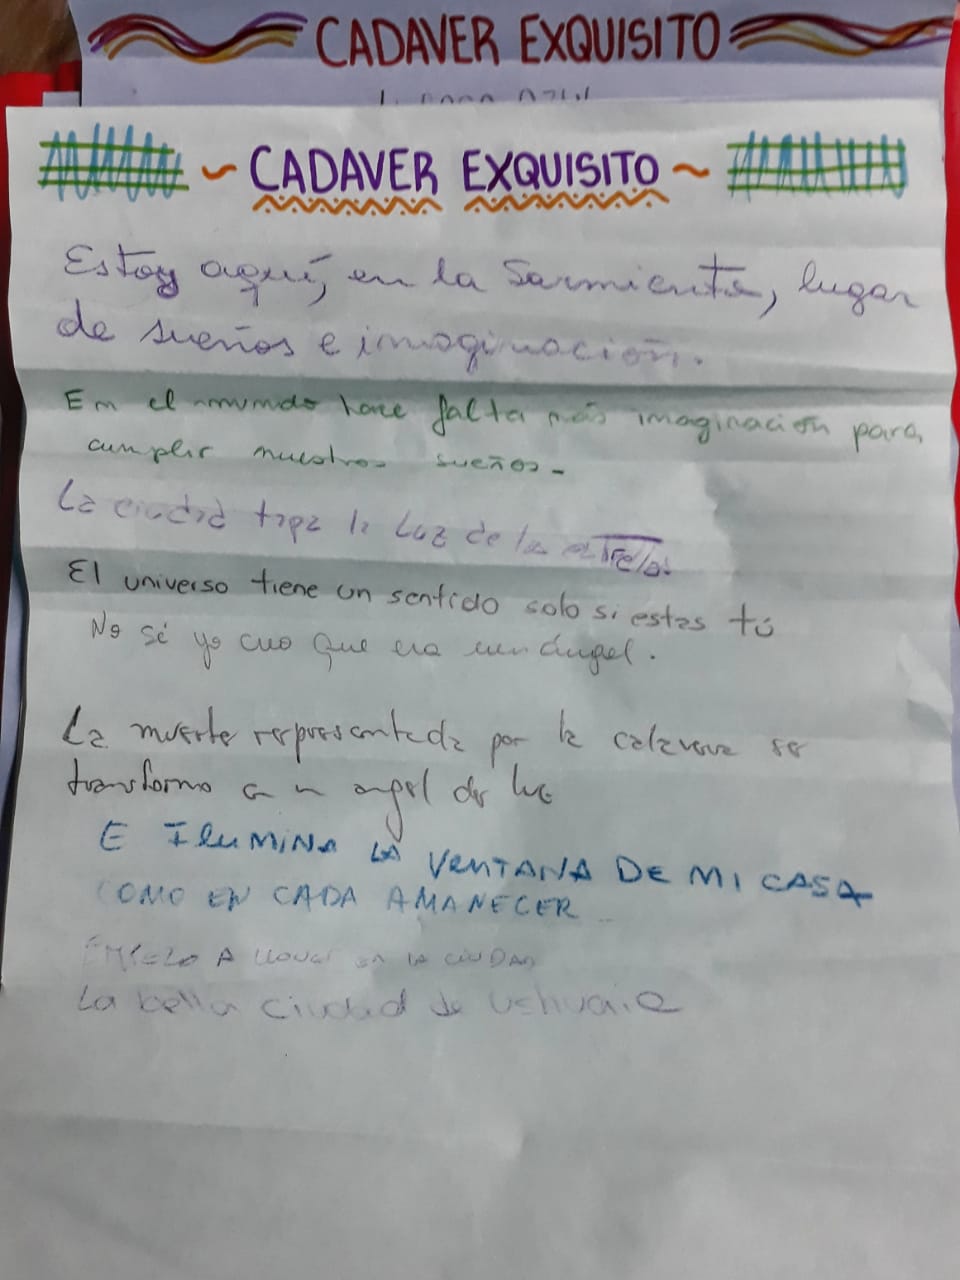 CADAVER EXQUISITO
~ CADAVER EXQUISITO ~
Estoy aquí, en la Sarmiento, lugar
de sueños e imaginación.
En el mundo hace falta más imaginación para
cumplir nuestros sueños-
La ciudad tapa la Luz de la estrella.
El universo tiene un sentido solo si estas tú
No sé yo creo que era un ángel.
La muerte representada por la calavera se
transformo en un angel de luz
E ILUMINA LA VENTANA DE MI CASA
COMO EN CADA AMANECER
EMPEZO A LLOVER EN LA CIUDAD
La bella ciudad de Ushuaia